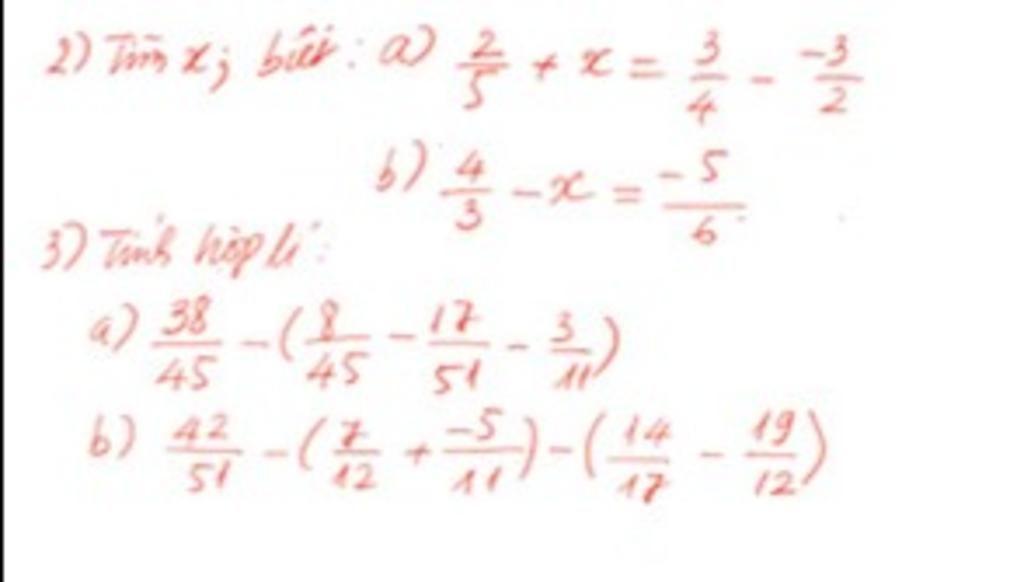 2) Tìm x; biết: a) 2/5 + x = 3/4 - -3/2
b) 4/3 - x = -5/6
3) Tính hợp lí:
a) 38/45 - (8/45 - 17/51 - 3/11)
b) 42/51 - (7/12 + -5/11) - (14/17 - 19/12)